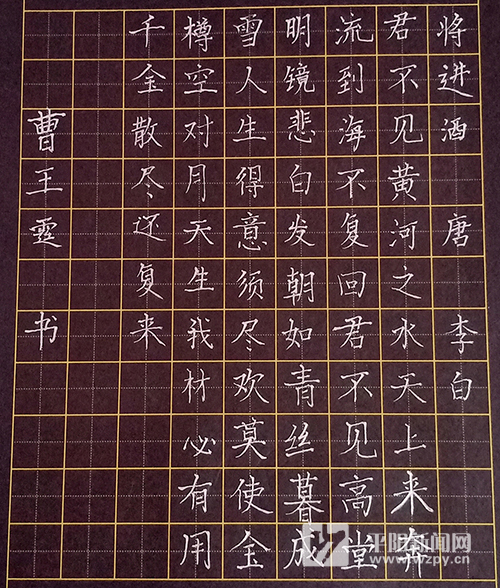 将进酒 唐 李白
君不见黄河之水天上来奔
流到海不复回君不见高堂
明镜悲白发朝如青丝暮成
雪人生得意须尽欢莫使金
樽空对月天生我材必有用
千金散尽还复来
曹王霆 书
平阳新闻网
www.wzpy.cn